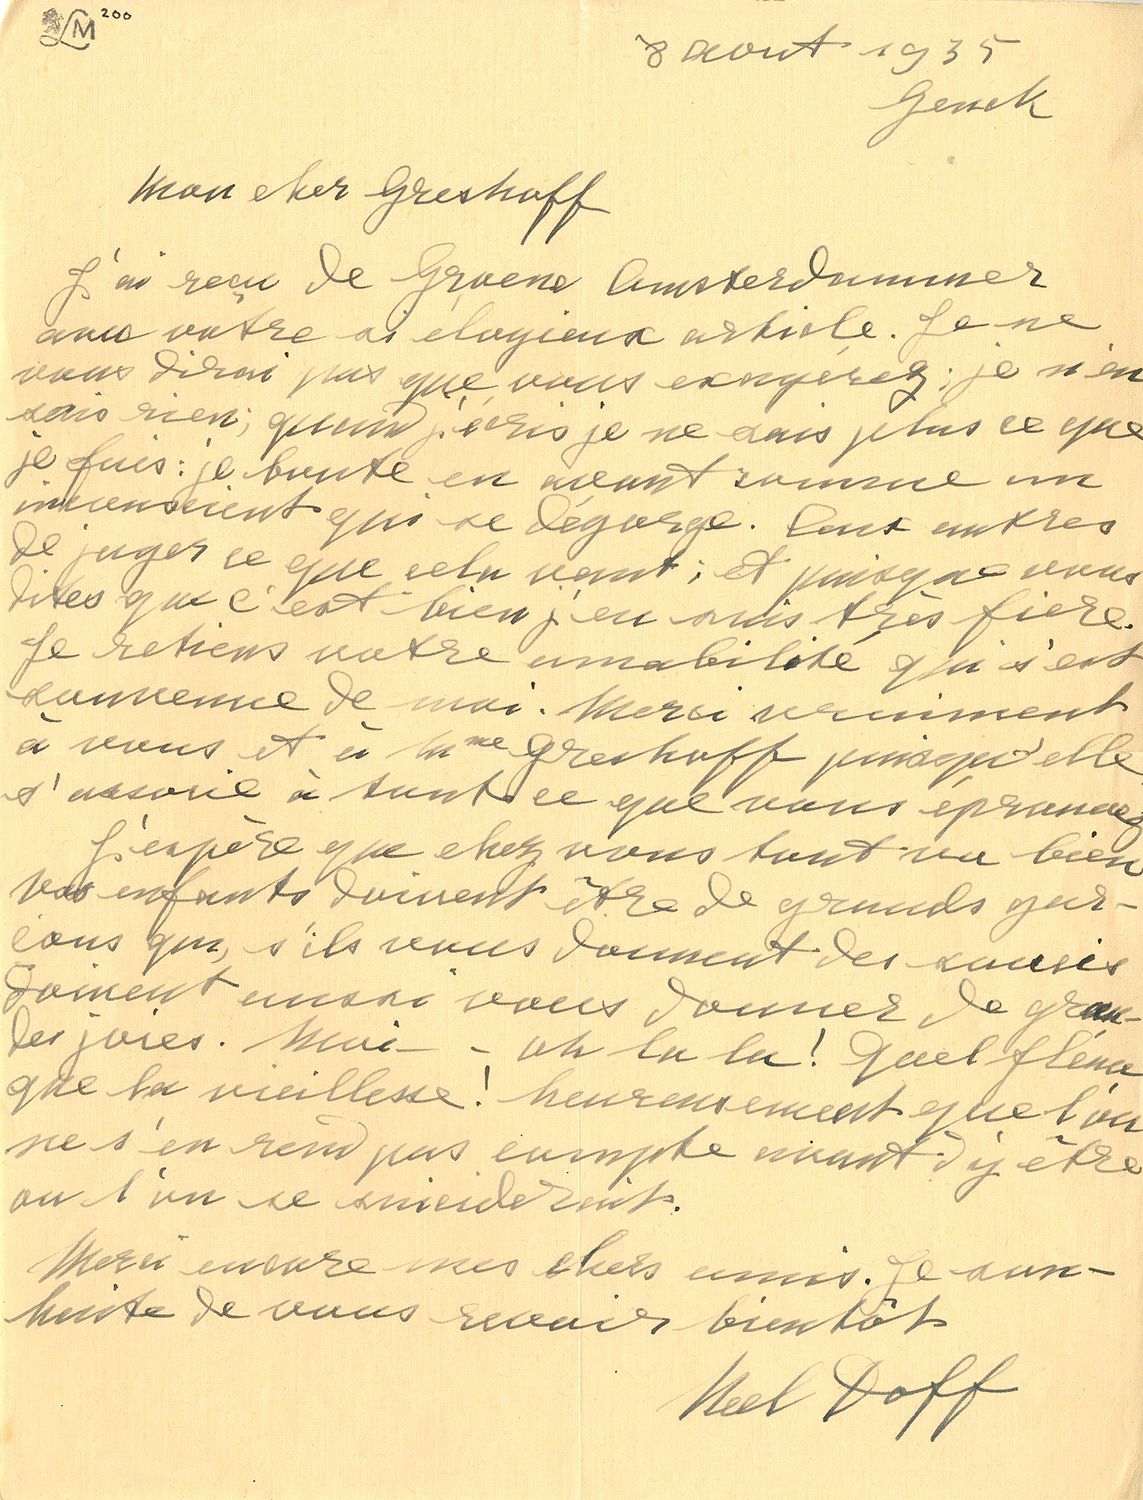 LM 200
8 aout 1935
Genck
Mon cher Greshoff
J'ai reçu De Groene Amsterdammer
avec votre si élogieux article. Je ne
vous dirai pas que vous exagérez; je n'en
sais rien; quand j'écris je ne sais plus ce que
je fais: je boute en avant comme un
inconscient qui se dégorge. Aux autres
de juger ce que cela vaut; et puisque vous
dites que c'est bien j'en suis très fiere.
Je retiens votre amabilité qui s'est
souvenue de moi. Merci vraiment
à vous et à Mme Greshoff puisqu'elle
s'associe à tout ce que vous éprouvez
J'espère que chez vous tout va bien
Vos enfants doivent être de grands gar-
çons qui, s'ils vous donnent des soucis
doivent aussi vous donner de gran-
des joies. Moi - - oh la la! Quel fléau
que la vieillesse! heureusement que l'on
ne s'en rend pas compte avant d'y être
ou l'on se suiciderait.
Merci encore mes chers amis. Je sou-
haite de vous revoir bientôt
Neel Doff